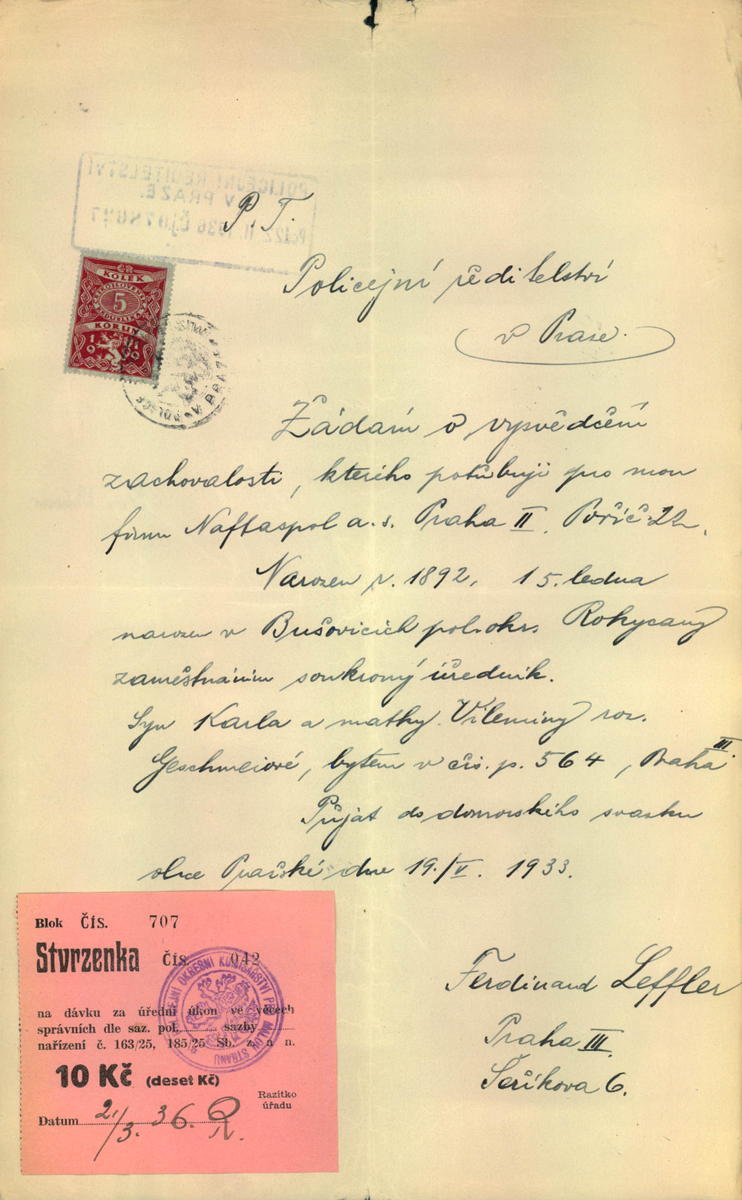 POLICEJNÍ ŘEDITELSTVÍ
V PRAZE.
1936
P. T.
Policejní ředitelství
v Praze.
ČR
KOLEK
5
KORUN
Žádám o vysvědčení
zachovalosti, kterého potřebuji pro mou
firmu Naftaspol a. s. Praha II. Poříč 22.
Narozen r. 1892, 15. ledna
narozen v Bušovicích pol. okr. Rokycany
zaměstnáním soukromý úředník.
Syn Karla a matky Vileminy roz.
bytem v čís. p. 564, Praha III.
Přijat do domovského svazku
obce Pražské dne 19./V. 1933.
Ferdinand Leffler
Praha III.
Šeříkova 6.
Blok ČÍS. 707
Stvrzenka ČÍS. 042
na dávku za úřední úkon ve věcech
správních dle saz. pol. sazby
nařízení č. 163/25, 185/25 Sb. z. a n.
10 Kč (deset Kč)
Razítko
úřadu
Datum 2./3. 36.
OKRESNÍ KOMISAŘSTVÍ PRO MALOU STRANU